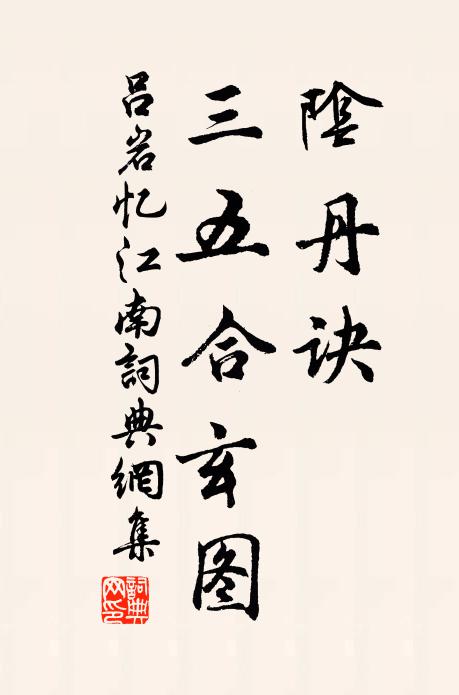 陰丹诀
三五合玄图
吕岩忆江南詞典網集
詞典网印